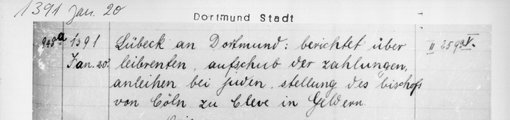 1391 Jan. 20
Dortmund Stadt
908a 1391 Lübeck an Dortmund: berichtet über
Jan. 20. leibrenten, aufschub der zahlungen,
anleihen bei juden, stellung des bischofs
von Cöln zu Cleve in Geldern